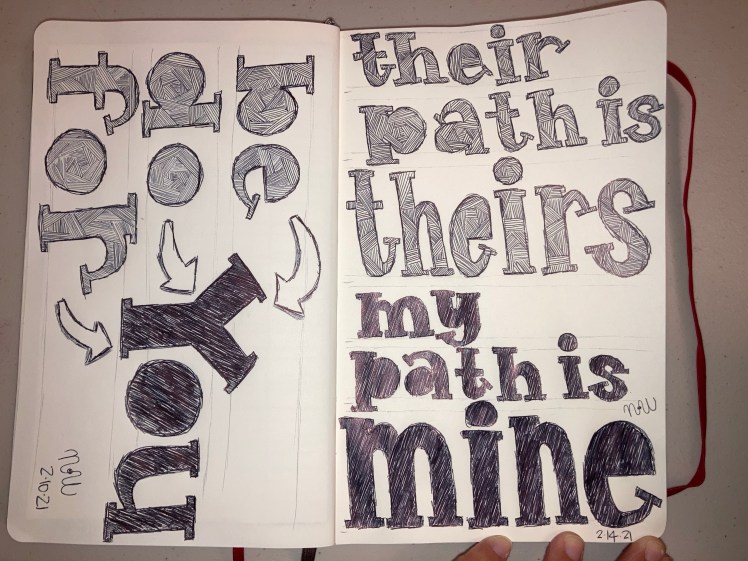 be
do
for
You
NAW
2-10-21
their
path is
theirs
my
path is
mine
NAW
2-14-21